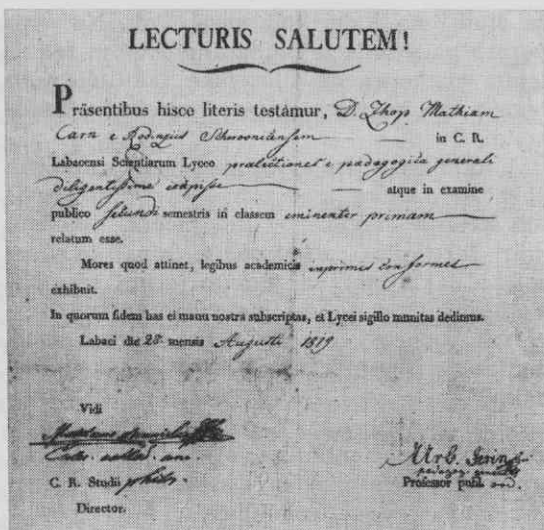 LECTURIS SALUTEM!
Präsentibus hisce literis testámur, D. Zhop Mathiam
Carn e Rodingus in C. R.
Labacensi Scientiarum Lyceo prælectiones e pædagogica generali
diligentissime atque in examine
publico secundi semestris in classem eminenter primam
relatum esse.
Mores quod attinet, legibus academicis inprimis conformes
exhibuit.
In quorum fidem has ei manu nostra subscriptas, et Lycei sigillo munitas dedimus.
Labaci die 28 mensis Augusti 1819
Vidi
C. R. Studii philos.
Director.
Urb.
Professor publ. ord.